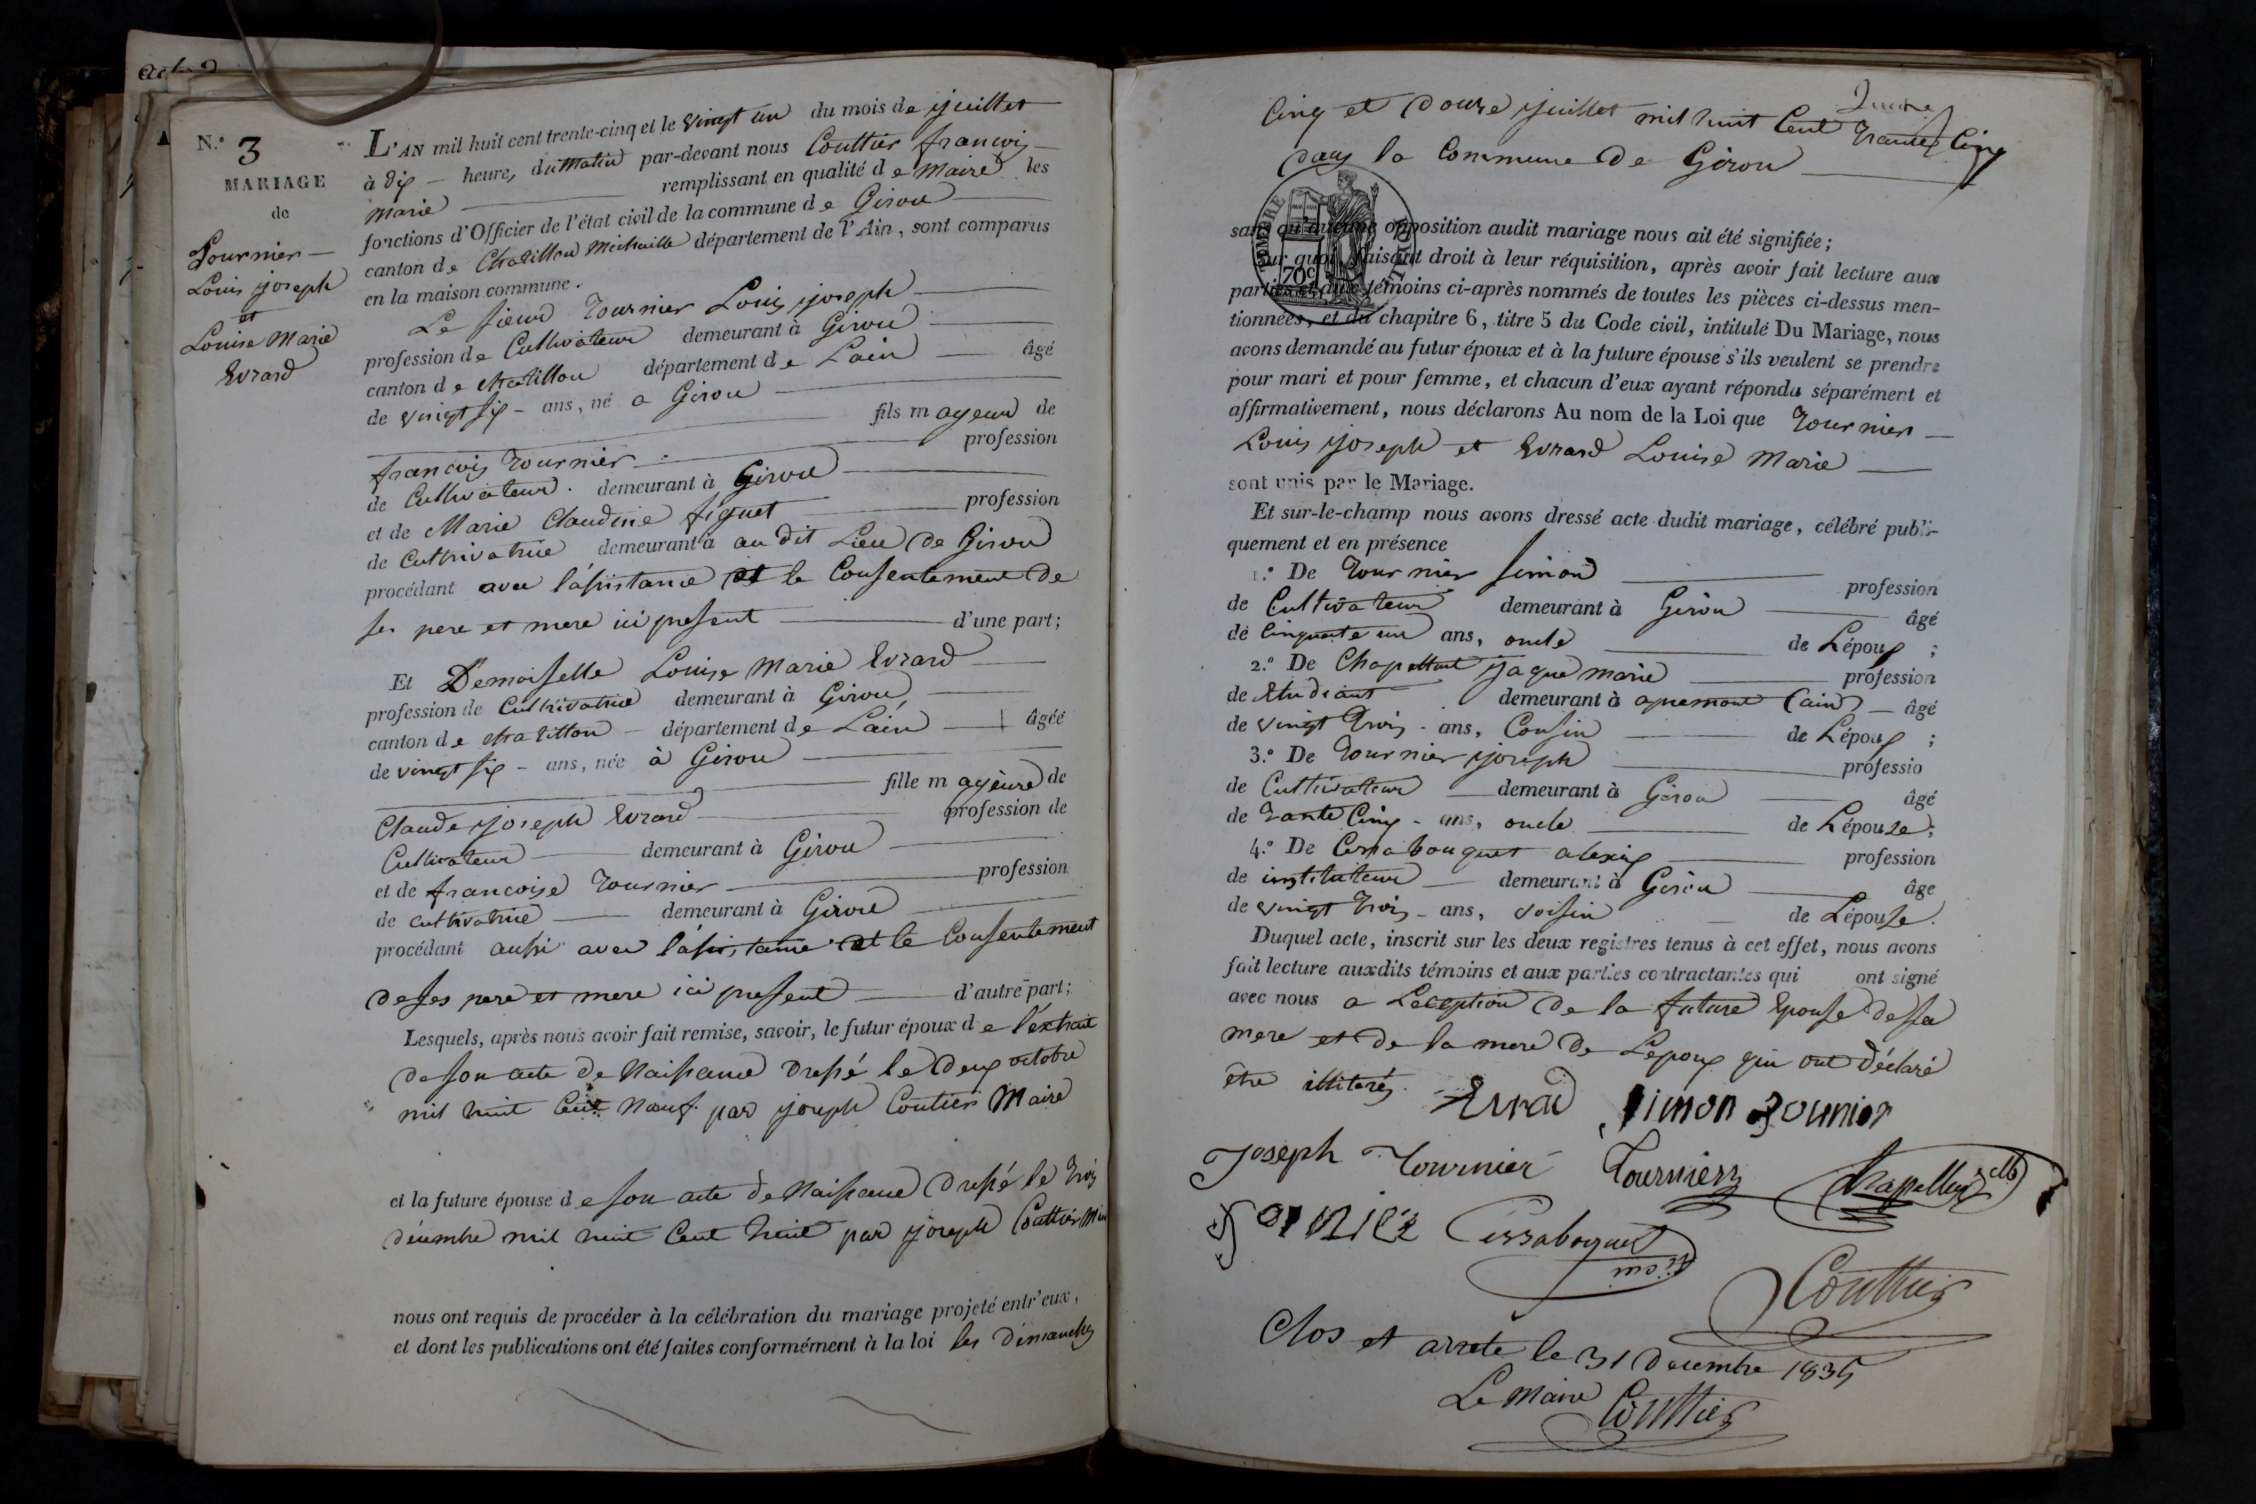 N.° 3
MARIAGE
de
Tournier
Louis joseph
et
Louise Marie
Evrard
L'AN mil huit cent trente-cinq et le vingt un du mois de juillet
à dix heure, du matin par-devant nous Couttier françois
marie remplissant en qualité de Maire les
fonctions d'Officier de l'état civil de la commune de Giron
canton de Chatillon Michaille département de l'Ain, sont comparus
en la maison commune.
Le sieur Tournier Louis joseph
profession de Cultivateur demeurant à Giron
canton de chatillon département de Lain âgé
de vingt six ans, né a Giron
fils mayeur de
françois Tournier profession
de Cultivateur. demeurant à Giron
et de Marie Claudine figuet profession
de Cultivatrice demeurant à au dit Lieu de Giron
procédant avec lassistance et le Consentement de
ses pere et mere ici present d'une part;
Et Demoiselle Louise Marie Evrard
profession de Cultivatrice demeurant à Giron
canton de chatillon département de Lain âgée
de vingt six ans, née à Giron
fille mayeure de
Claude joseph Evrard profession de
Cultivateur demeurant à Giron
et de françoise Tournier profession
de cultivatrice demeurant à Giron
procédant aussi avec l'assistance et le Consentement
de ses pere et mere ici present d'autre part;
Lesquels, après nous avoir fait remise, savoir, le futur époux de l'extrait
de son acte de Naissance dressé le deux octobre
mil huit Cent Neuf. par joseph Coutier Maire
et la future épouse de son acte de Naissance dressé le trois
décembre mil huit Cent huit par joseph Couttier
nous ont requis de procéder à la célébration du mariage projeté entr'eux,
et dont les publications ont été faites conformément à la loi les dimanches
Cinq et douze juillet mil huit Cent Trante Cinq
dans la Commune de Giron
TIMBRE
70c
sans qu'aucune opposition audit mariage nous ait été signifiée;
Sur quoi, faisant droit à leur réquisition, après avoir fait lecture aux
parties et aux témoins ci-après nommés de toutes les pièces ci-dessus men-
tionnées, et du chapitre 6, titre 5 du Code civil, intitulé Du Mariage, nous
avons demandé au futur époux et à la future épouse s'ils veulent se prendre
pour mari et pour femme, et chacun d'eux ayant répondu séparément et
affirmativement, nous déclarons Au nom de la Loi que Tournier
Louis joseph et Evrard Louise Marie
sont unis par le Mariage.
Et sur-le-champ nous avons dressé acte dudit mariage, célébré publi-
quement et en présence
1.° De Tournier simon
profession
de Cultivateur demeurant à Giron âgé
de Cinquante un ans, oncle de Lépoux ;
2.° De Chapellut jaque marie profession
de Etudiant demeurant à apremont (ain) âgé
de vingt trois ans, Cousin de Lépoux ;
3.° De Tournier joseph professio
de Cultivateur demeurant à Giron âgé
de Trante Cinq ans, oncle de Lépouse;
4.° De Cessabouquet alexis profession
de instituteur demeurant à Giron âge
de vingt trois ans, voisin de Lépouse.
Duquel acte, inscrit sur les deux registres tenus à cet effet, nous avons
fait lecture auxdits témoins et aux parties contractantes qui ont signé
avec nous a Léception de la future Epouse de sa
mere et de la mere de Lepoux qui ont déclaré
être illiterés.
Evrad Simon Tounier
Joseph Tournier Tournier
Cessaboquet
Couttier
Clos et arrete le 31 decembre 1835
Le Maire Couttier